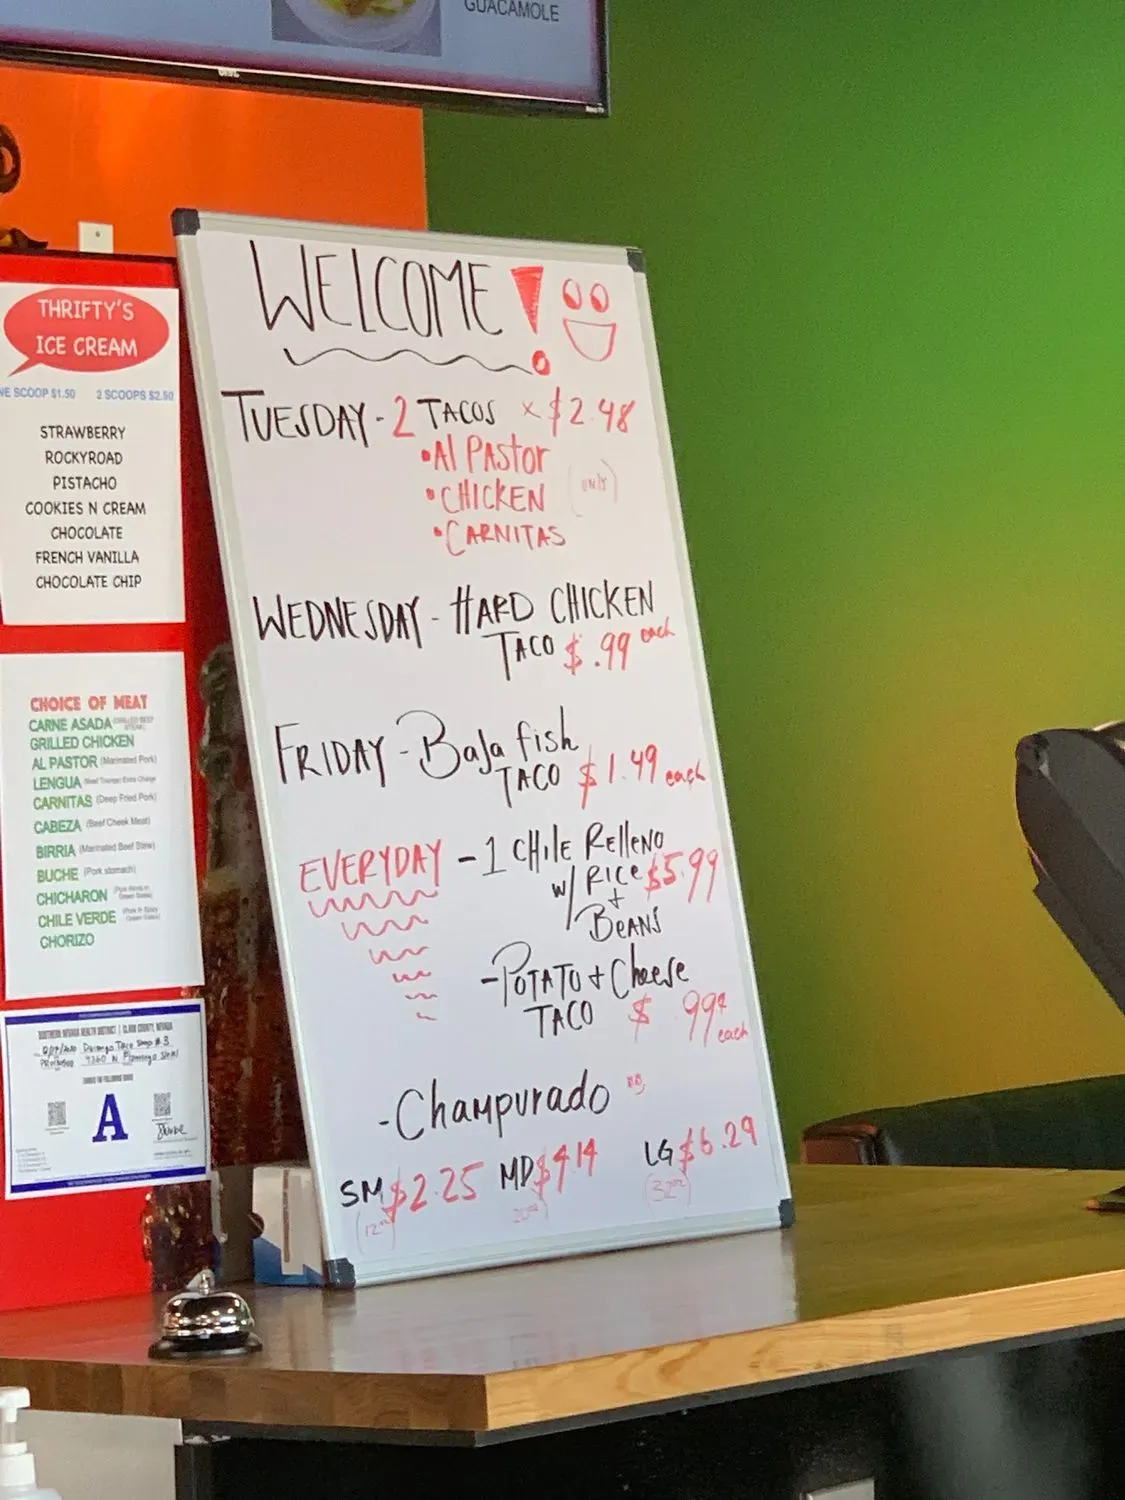 GUACAMOLE
WELCOME!
TUESDAY - 2 TACOS x $2.48
• Al PASTOR
• CHICKEN (ONLY)
• CARNITAS
WEDNESDAY - HARD CHICKEN
TACO $.99 each
FRIDAY - Baja fish
TACO $1.49 each
EVERYDAY - 1 CHILE Relleno
w/ RICE $5.99
+
BEANS
- POTATO + Cheese
TACO $ .99¢
each
- Champurado
SM $2.25 MD $4.14 LG $6.29
(12oz) (20oz) (32oz)
THRIFTY'S
ICE CREAM
NE SCOOP $1.50 2 SCOOPS $2.50
STRAWBERRY
ROCKYROAD
PISTACHO
COOKIES N CREAM
CHOCOLATE
FRENCH VANILLA
CHOCOLATE CHIP
CHOICE OF MEAT
CARNE ASADA (GRILLED BEEF
STEAK)
GRILLED CHICKEN
AL PASTOR (Marinated Pork)
LENGUA (Beef Tongue) Extra Charge
CARNITAS (Deep Fried Pork)
CABEZA (Beef Cheek Meat)
BIRRIA (Marinated Beef Stew)
BUCHE (Pork stomach)
CHICHARON (Pork Rinds in
Green Salsa)
CHILE VERDE (Pork in Spicy
Green Salsa)
CHORIZO
SOUTHERN NEVADA HEALTH DISTRICT | CLARK COUNTY, NEVADA
Durango Taco Shop #3
A